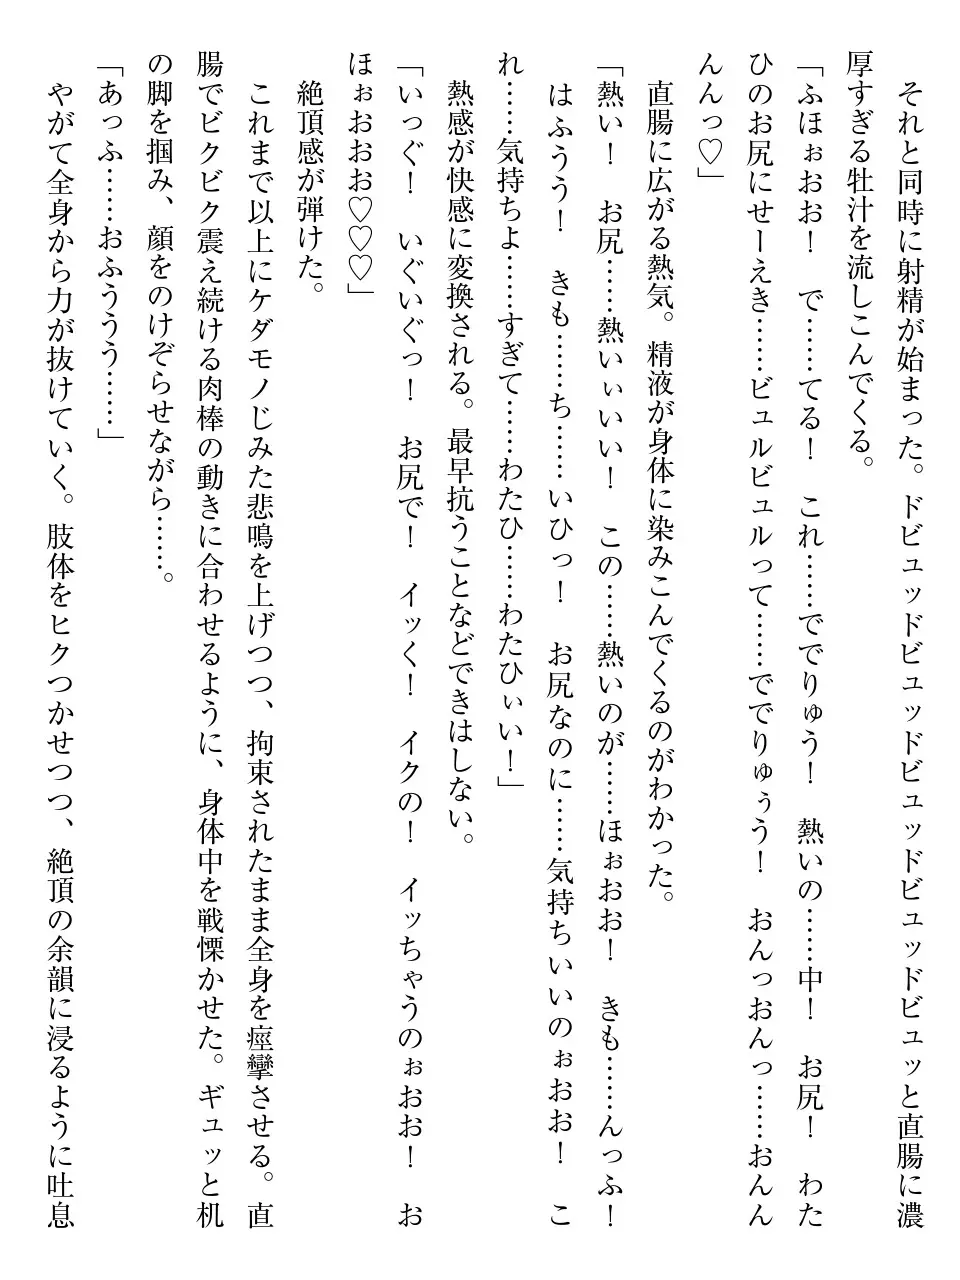 それと同時に射精が始まった。ドビュッドビュッドビュッドビュッドビュッと直腸に濃
厚すぎる牡汁を流しこんでくる。
「ふほぉおお！　で……てる！　これ……ででりゅう！　熱いの……中！　お尻！　わた
ひのお尻にせーえき……ビュルビュルって……ででりゅぅう！　おんっおんっ……おんん
んんっ♡」
直腸に広がる熱気。精液が身体に染みこんでくるのがわかった。
「熱い！　お尻……熱いぃいい！　この……熱いのが……ほぉおお！　きも……んっふ！
はふうう！　きも……ち……いひっ！　お尻なのに……気持ちいいのぉおお！　こ
れ……気持ちよ……すぎて……わたひ……わたひぃい！」
熱感が快感に変換される。最早抗うことなどできはしない。
「いっぐ！　いぐいぐっ！　お尻で！　イッく！　イクの！　イッちゃうのぉおお！　お
ほぉおおお♡♡♡」
絶頂感が弾けた。
これまで以上にケダモノじみた悲鳴を上げつつ、拘束されたまま全身を痙攣させる。直
腸でビクビク震え続ける肉棒の動きに合わせるように、身体中を戦慄かせた。ギュッと机
の脚を掴み、顔をのけぞらせながら……。
「あっふ……おふううう……」
やがて全身から力が抜けていく。肢体をヒクつかせつつ、絶頂の余韻に浸るように吐息